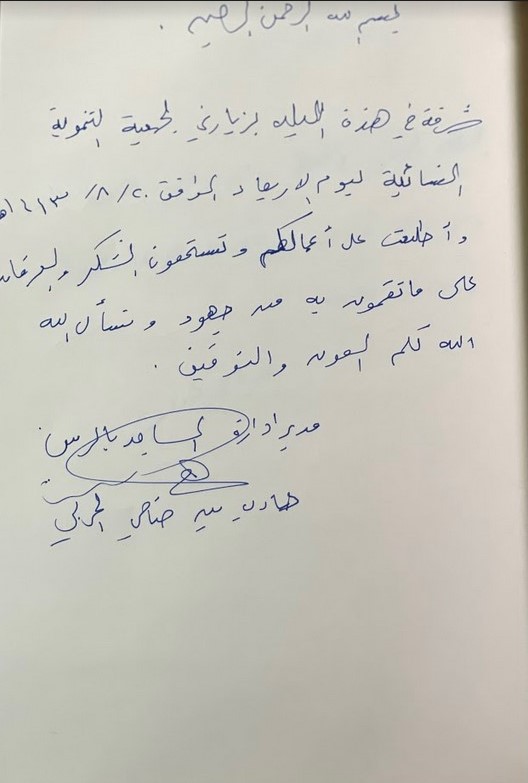 بسم الله الرحمن الرحيم .
شرفة في هذة الليله بزيارتي لجمعية التنموية
النسائية ليوم الاربعاء الموافق ٢٠/ ٨/
وأطلعت على أعمالكم وتستحقون الشكر والعرفان
على ماتقمون به من جهود ونسأل الله
الله لكم العون والتوفيق .
مدير ادارة المساجد بالرس
بن ضاحي الحربي